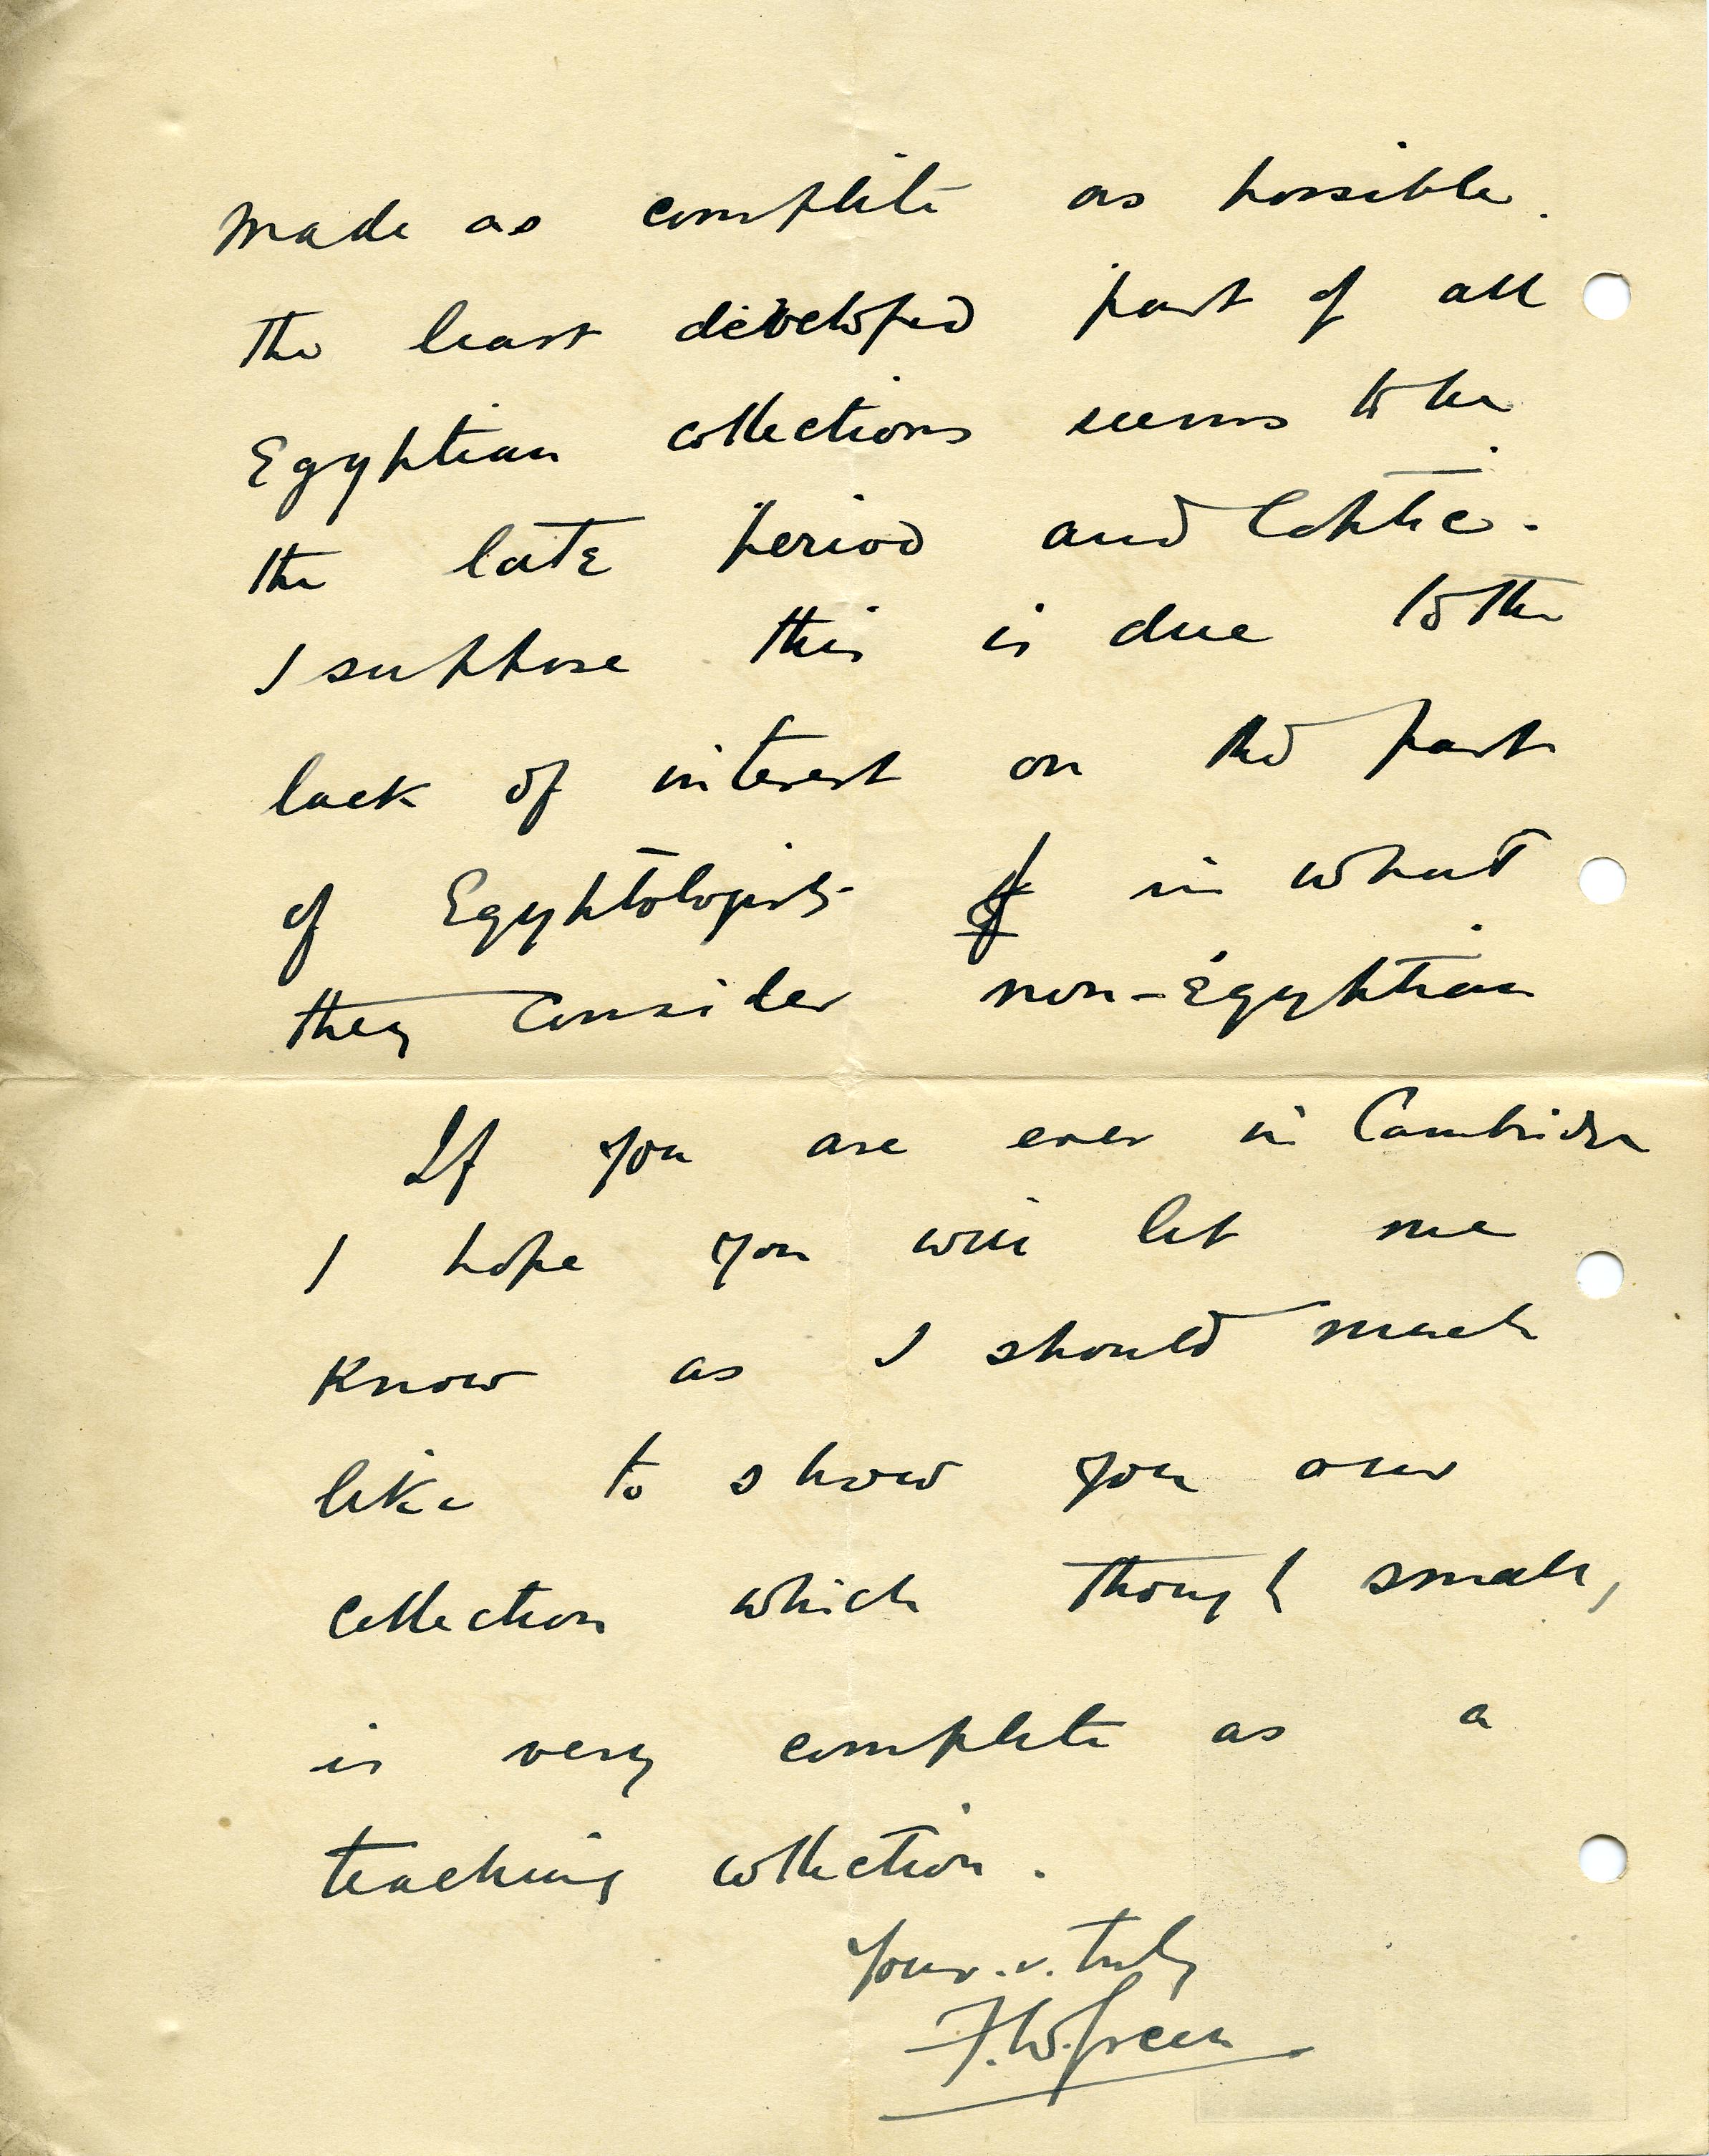 made as complete as possible.
The least developed part of all
Egyptian collections seems to be
the late period and Coptic.
I suppose this is due to the
lack of interest on the part
of Egyptologists in what
they consider non-Egyptian
If you are ever in Cambridge
I hope you will let me
know as I should much
like to show you our
collection which though small,
is very complete as a
teaching collection.
Yours. v. truly
F. W. Green